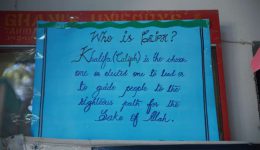 Who is [?]?
Khalifa (Caliph) is the chosen
one or elected one to lead or
to guide people to the
righteous path for the
Sake of Allah.